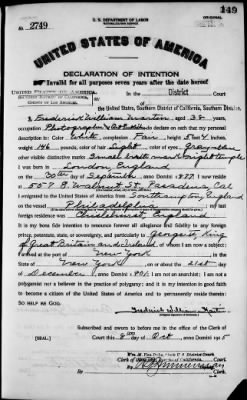 149
U. S. DEPARTMENT OF LABOR
ORIGINAL
No. 2749
UNITED STATES OF AMERICA
DECLARATION OF INTENTION
Invalid for all purposes seven years after the date hereof
In the District Court
of the United States, Southern District of California, Southern Division
I, Frederick William Martin, aged 38 years,
occupation Photographer, do declare on oath that my personal
description is: Color White, complexion Fair, height 5 feet inches,
weight 146 pounds, color of hair Light, color of eyes
other visible distinctive marks Small
I was born in London, England
on the 30th day of September, anno Domini 1877; I now reside
at 557 Walnut St., Pasadena, Cal
I emigrated to the United States of America from Southampton, England
on the vessel Philadelphia; my last
foreign residence was Chislehurst, England
It is my bona fide intention to renounce forever all allegiance and fidelity to any foreign
prince, potentate, state, or sovereignty, and particularly to George V, King
of Great Britain and Ireland, of whom I am now a subject; I
arrived at the port of New York, in the
State of New York, on or about the 21st day
of December, anno Domini 1901; I am not an anarchist; I am not a
polygamist nor a believer in the practice of polygamy; and it is my intention in good faith
to become a citizen of the United States of America and to permanently reside therein:
SO HELP ME GOD.
Frederick William
Subscribed and sworn to before me in the office of the Clerk of
said Court this 8 day of Oct, anno Domini 1915
[SEAL.]
Clerk of the